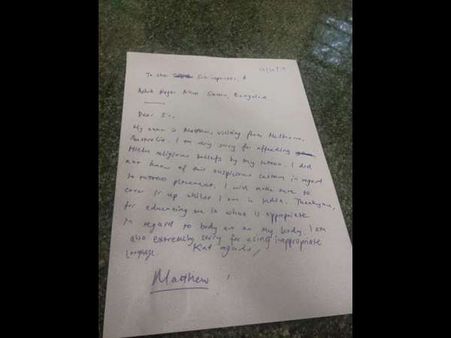 To the Sub-inspector,
Ashok Nagar Police Station, Bangalore
Dear Sir,
My name is Matthew, visiting from Melbourne,
Australia. I am very sorry for offending
Hindu religious beliefs by my tattoo. I did
not know of this custom in regard
to tattoo placement. I will make sure to
cover it up whilst I am in India. Thankyou,
for educating me in what is appropriate
in regard to body art on my body. I am
also extremely sorry for using inappropriate
language.
Matthew